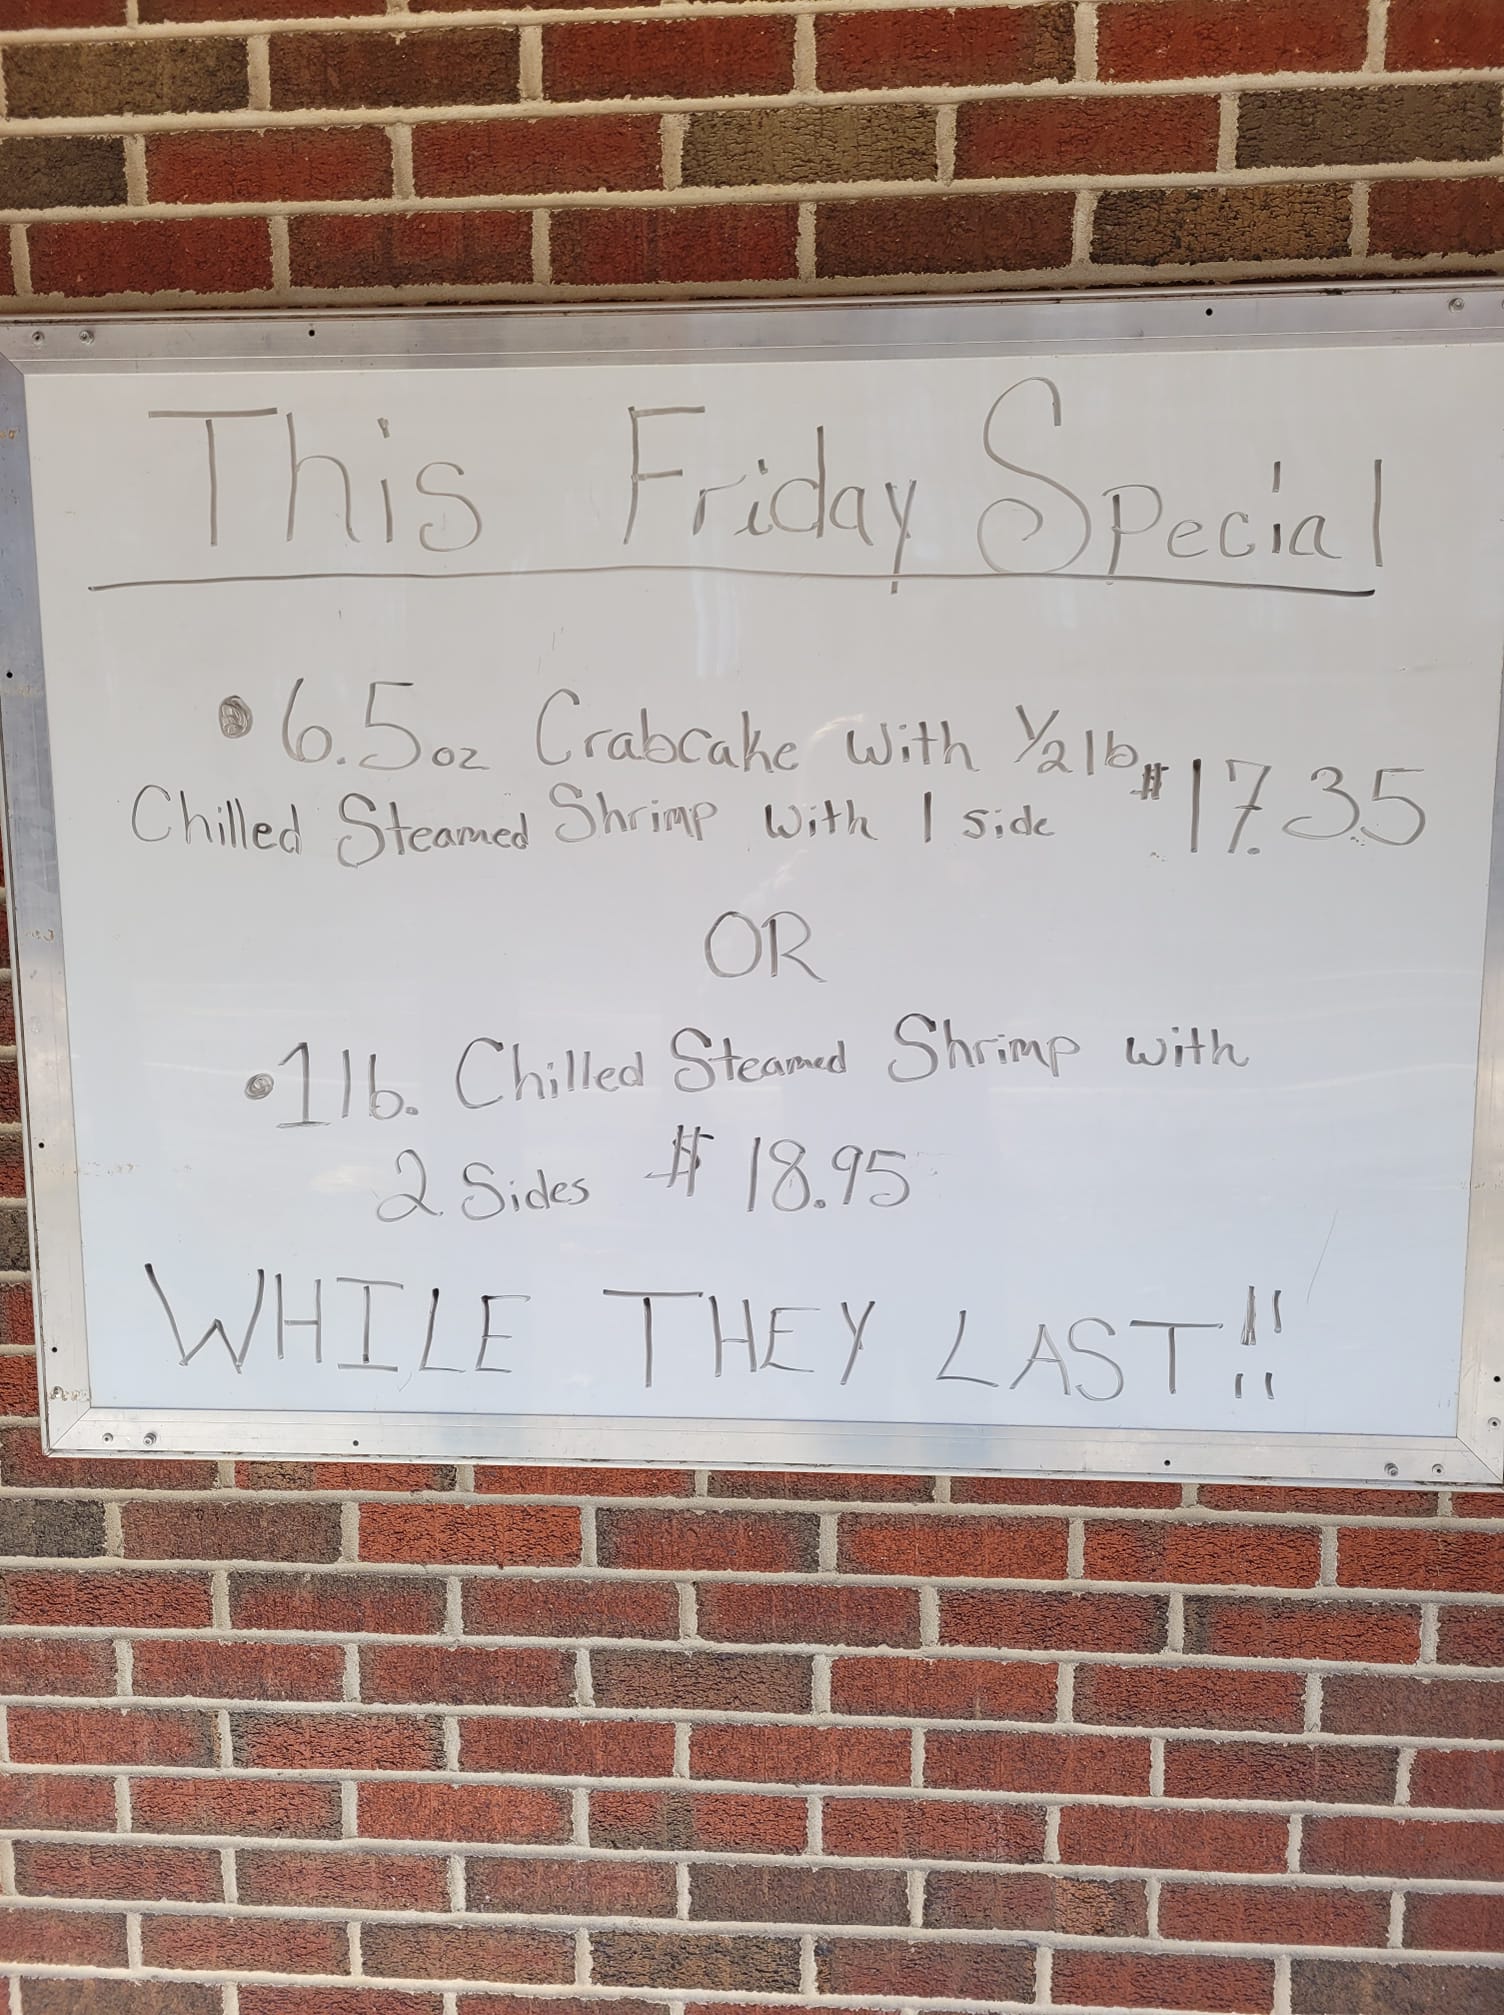 This Friday Special
• 6.5oz Crabcake with 1/2 lb
Chilled Steamed Shrimp with 1 side $17.35
OR
• 1 lb. Chilled Steamed Shrimp with
2 Sides $18.95
WHILE THEY LAST!!